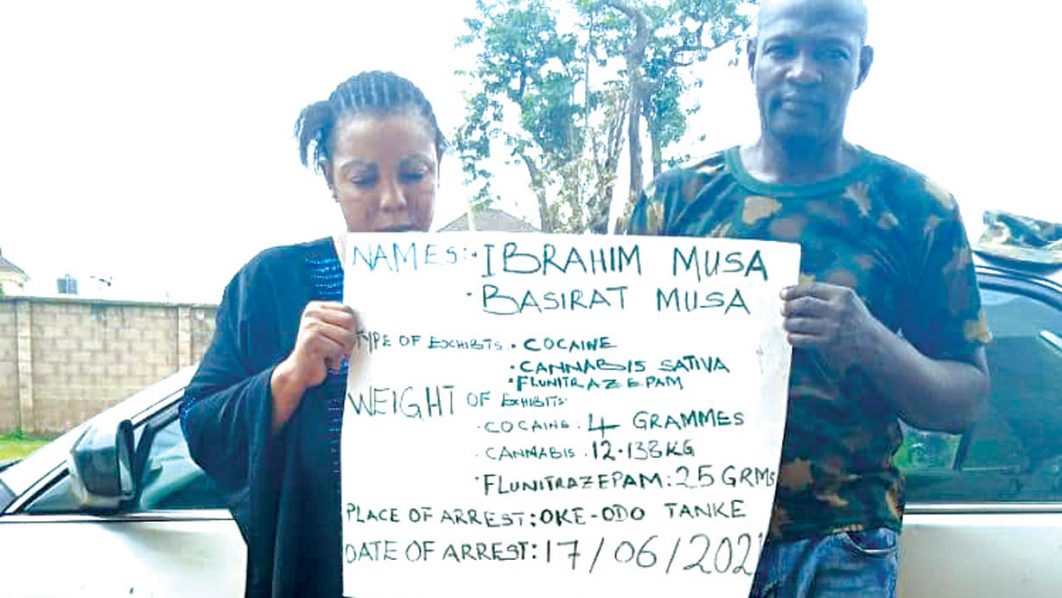 NAMES: • IBRAHIM MUSA
• BASIRAT MUSA
TYPE OF EXHIBITS • COCAINE
• CANNABIS SATIVA
• FLUNITRAZEPAM
WEIGHT OF EXHIBITS
• COCAINE • 4 GRAMMES
• CANNABIS • 12.138KG
• FLUNITRAZEPAM: 25 GRMS
PLACE OF ARREST: OKE-ODO TANKE
DATE OF ARREST: 17/06/2021